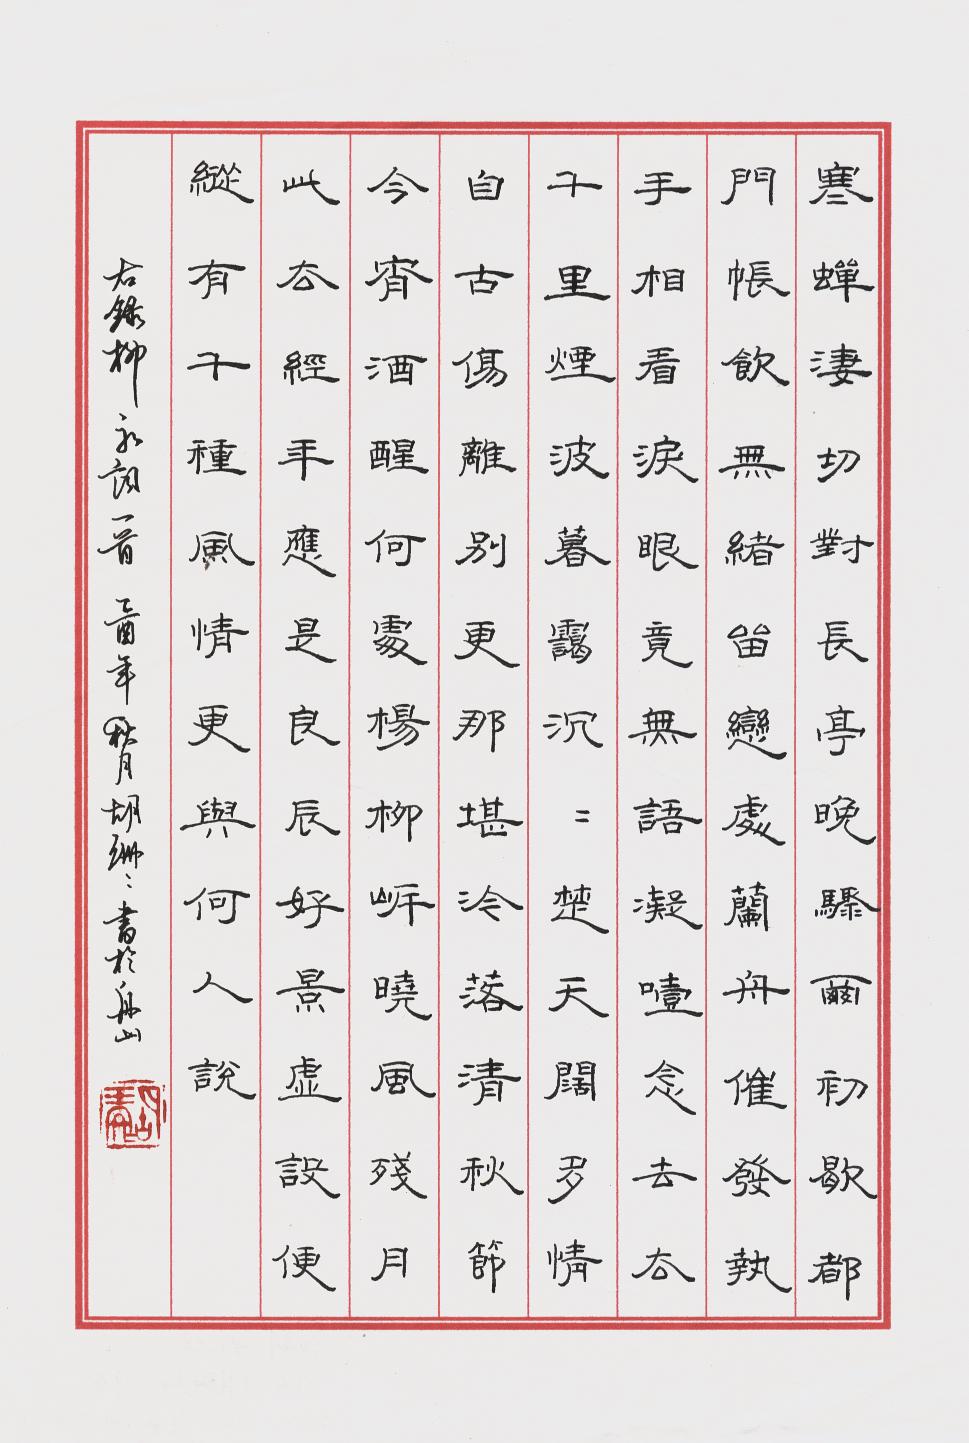 寒蟬淒切對長亭晚驟雨初歇都
門帳飲無緒留戀處蘭舟催發執
手相看淚眼竟無語凝噎念去去
千里煙波暮靄沉〻楚天闊多情
自古傷離別更那堪冷落清秋節
今宵酒醒何處楊柳岸曉風殘月
此去經年應是良辰好景虛設便
縱有千種風情更與何人說
右錄柳永詞一首 乙酉年秋月胡珊〻書於舟山